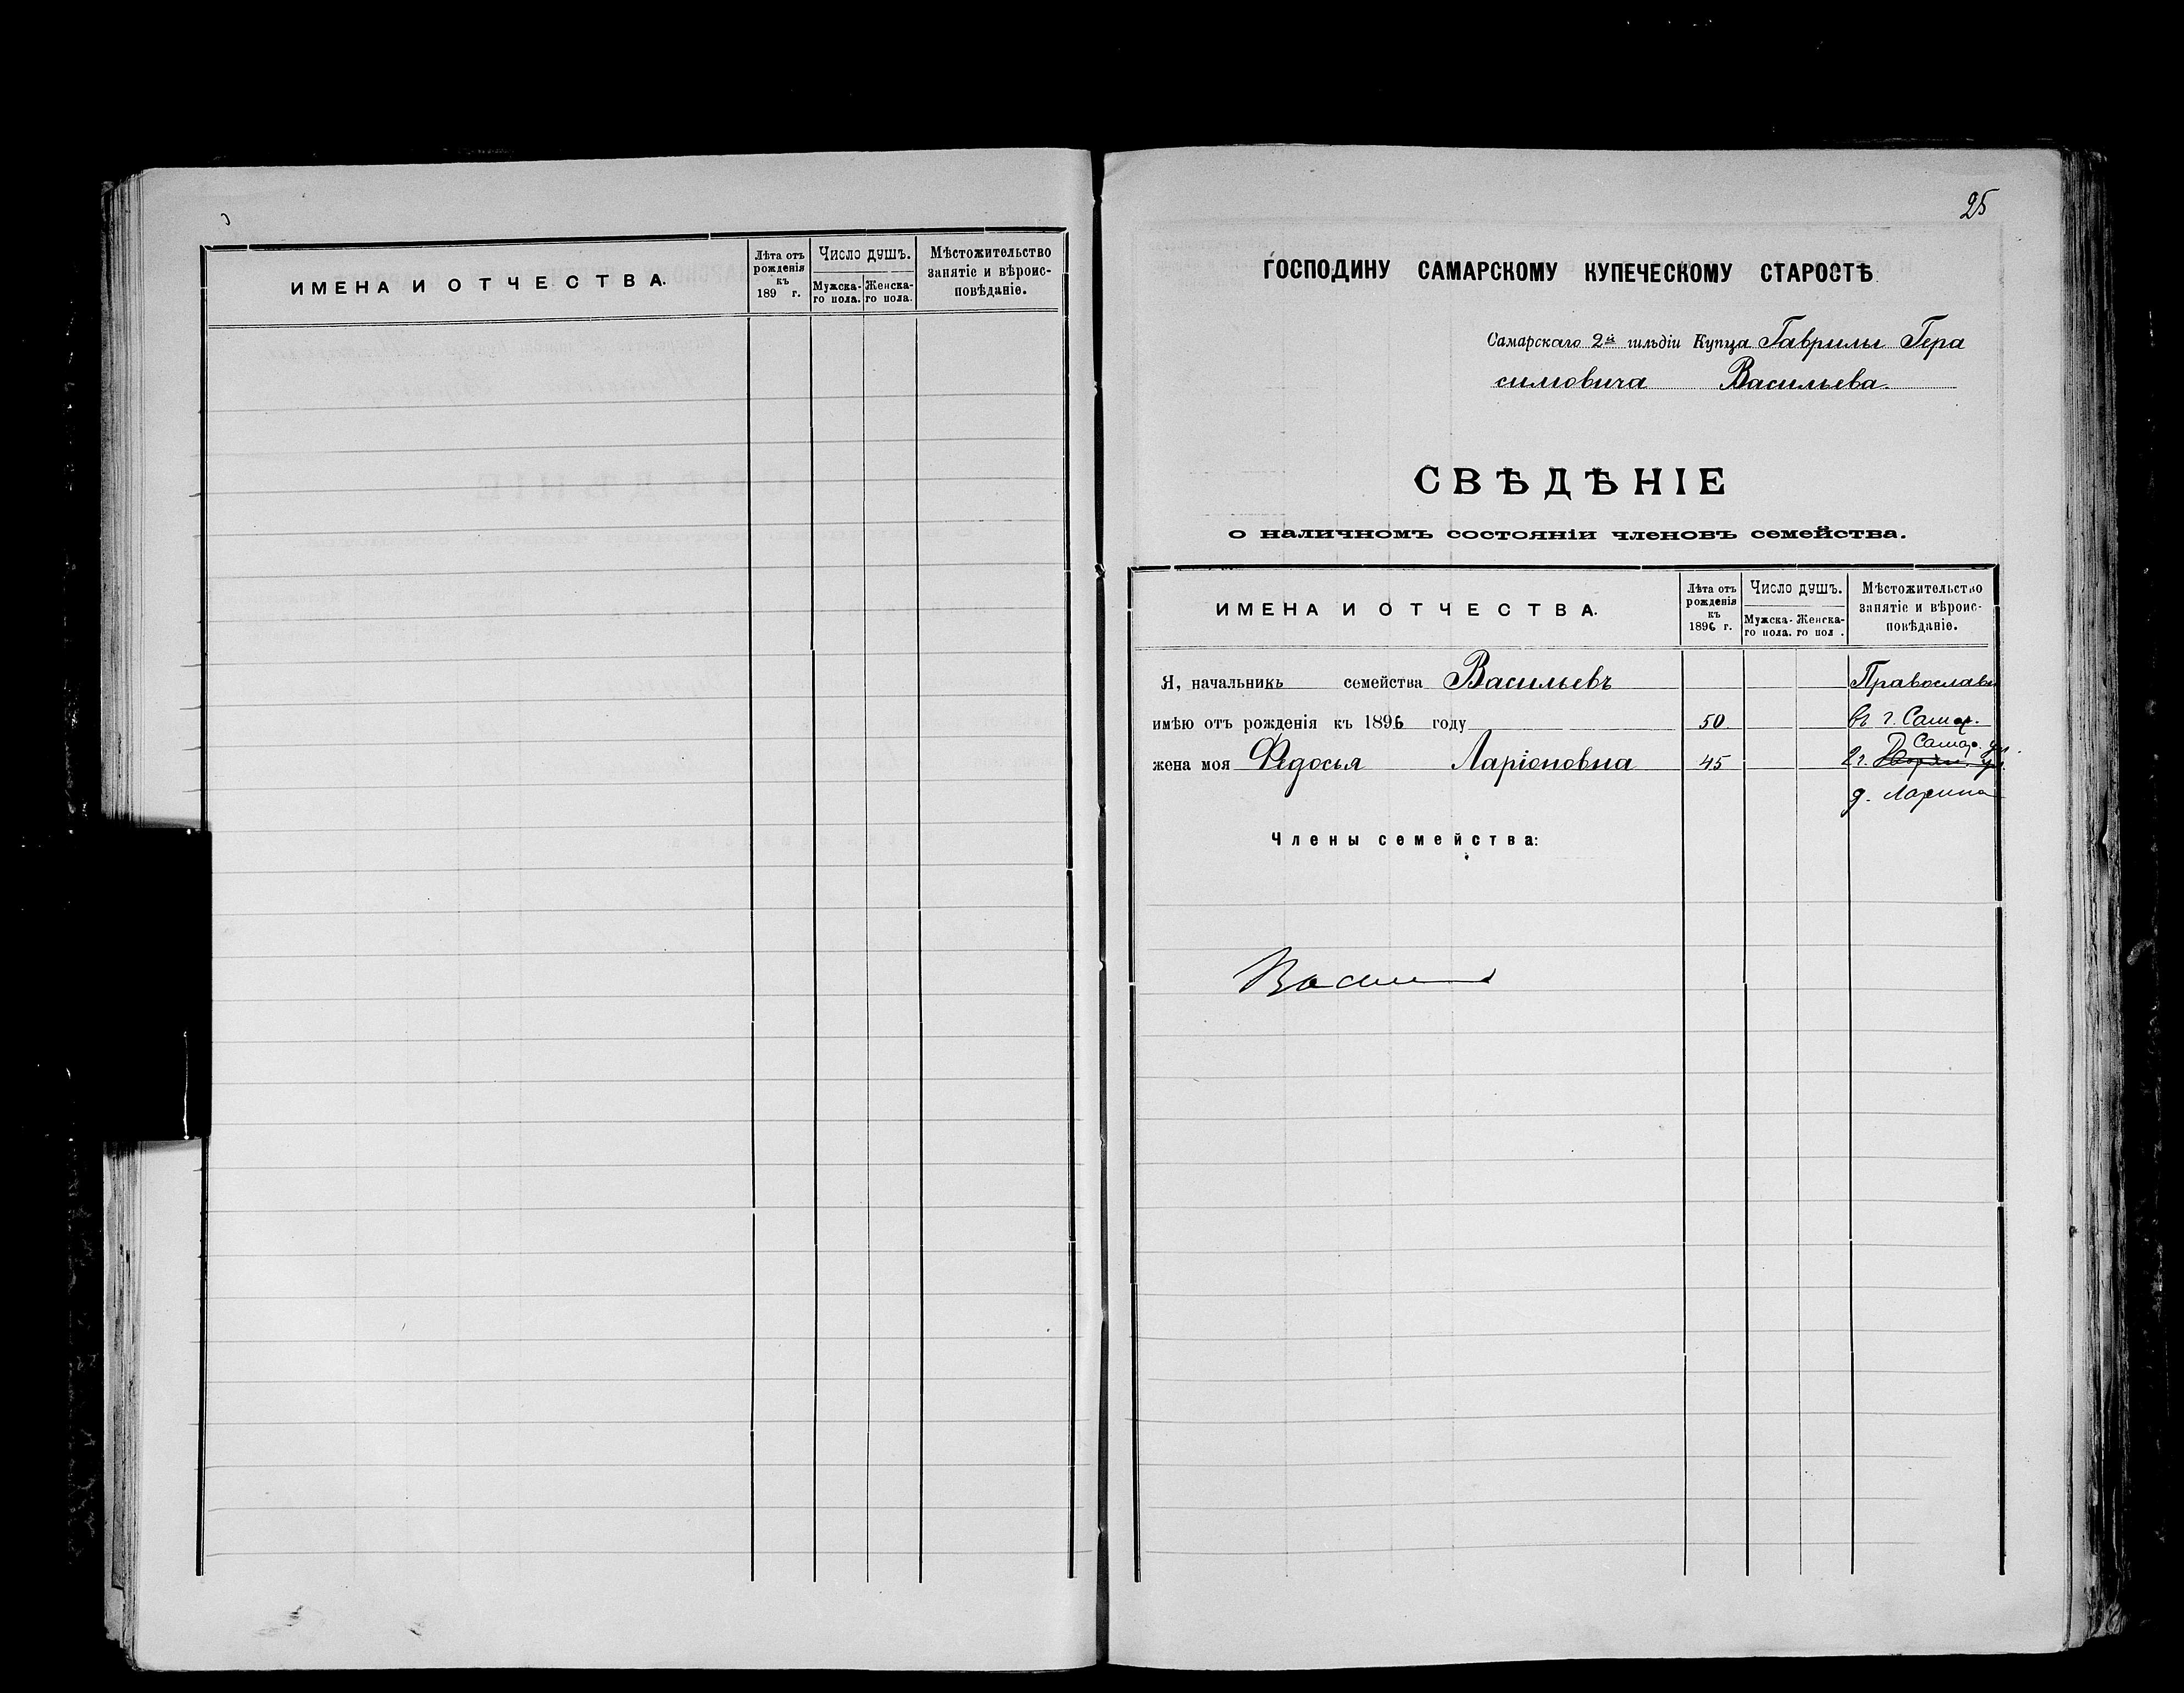 ИМЕНА И ОТЧЕСТВА.
Лѣта отъ рожденія къ 189 г.
Число душъ.
Мужска-го пола.
Женска-го пола.
Мѣстожительство занятіе и вѣроис-повѣданіе.
25
ГОСПОДИНУ САМАРСКОМУ КУПЕЧЕСКОМУ СТАРОСТѢ.
Самарскаго 2й гильдіи Купца Гаврилы Гера
симовича Васильева.
СВѢДѢНІЕ
о наличномъ состояніи членовъ семейства.
ИМЕНА И ОТЧЕСТВА.
Лѣта отъ рожденія къ 1896 г.
Число душъ.
Мужска-го пола.
Женска-го пол .
Мѣстожительство занятіе и вѣроис-повѣданіе.
Я, начальникъ семейства Васильевъ Православн
имѣю отъ рожденія къ 1896 году 50 въ г. Самар.
Самар. ул.
жена моя Федосья Ларіоновна 45
д. Ларина
Члены семейства: